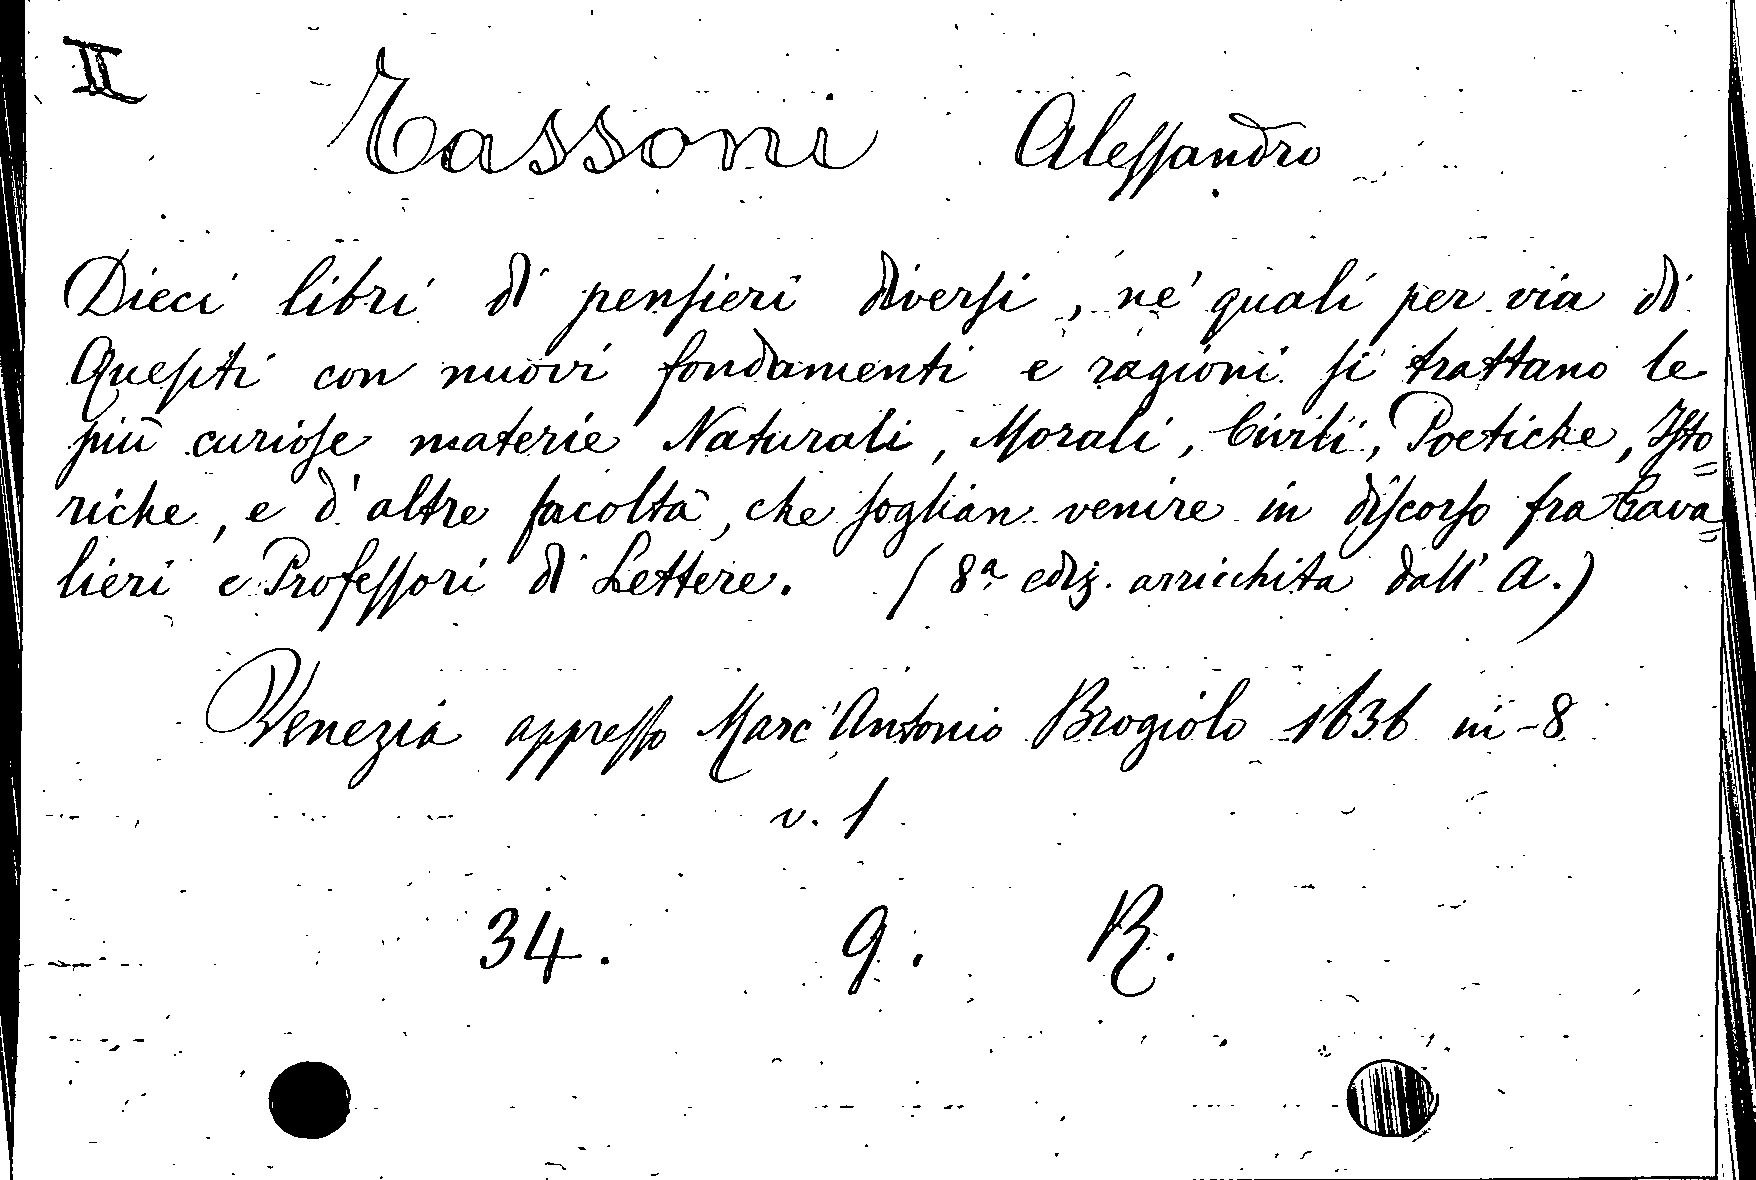 II
Tassoni Alessandro
Dieci libri di pensieri diversi, ne' quali per via di
Quesiti con nuovi fondamenti e ragioni si trattano le
più curiose materie Naturali, Morali, Civili, Poetiche, Isto=
riche, e d'altre facoltà, che soglian venire in discorso fra Cava=
lieri e Professori di Lettere. (8ª ediz. arricchita dall'A.)
Venezia appresso Marc'Antonio Brogiolo 1636 in-8
v. 1
34. 9. R.